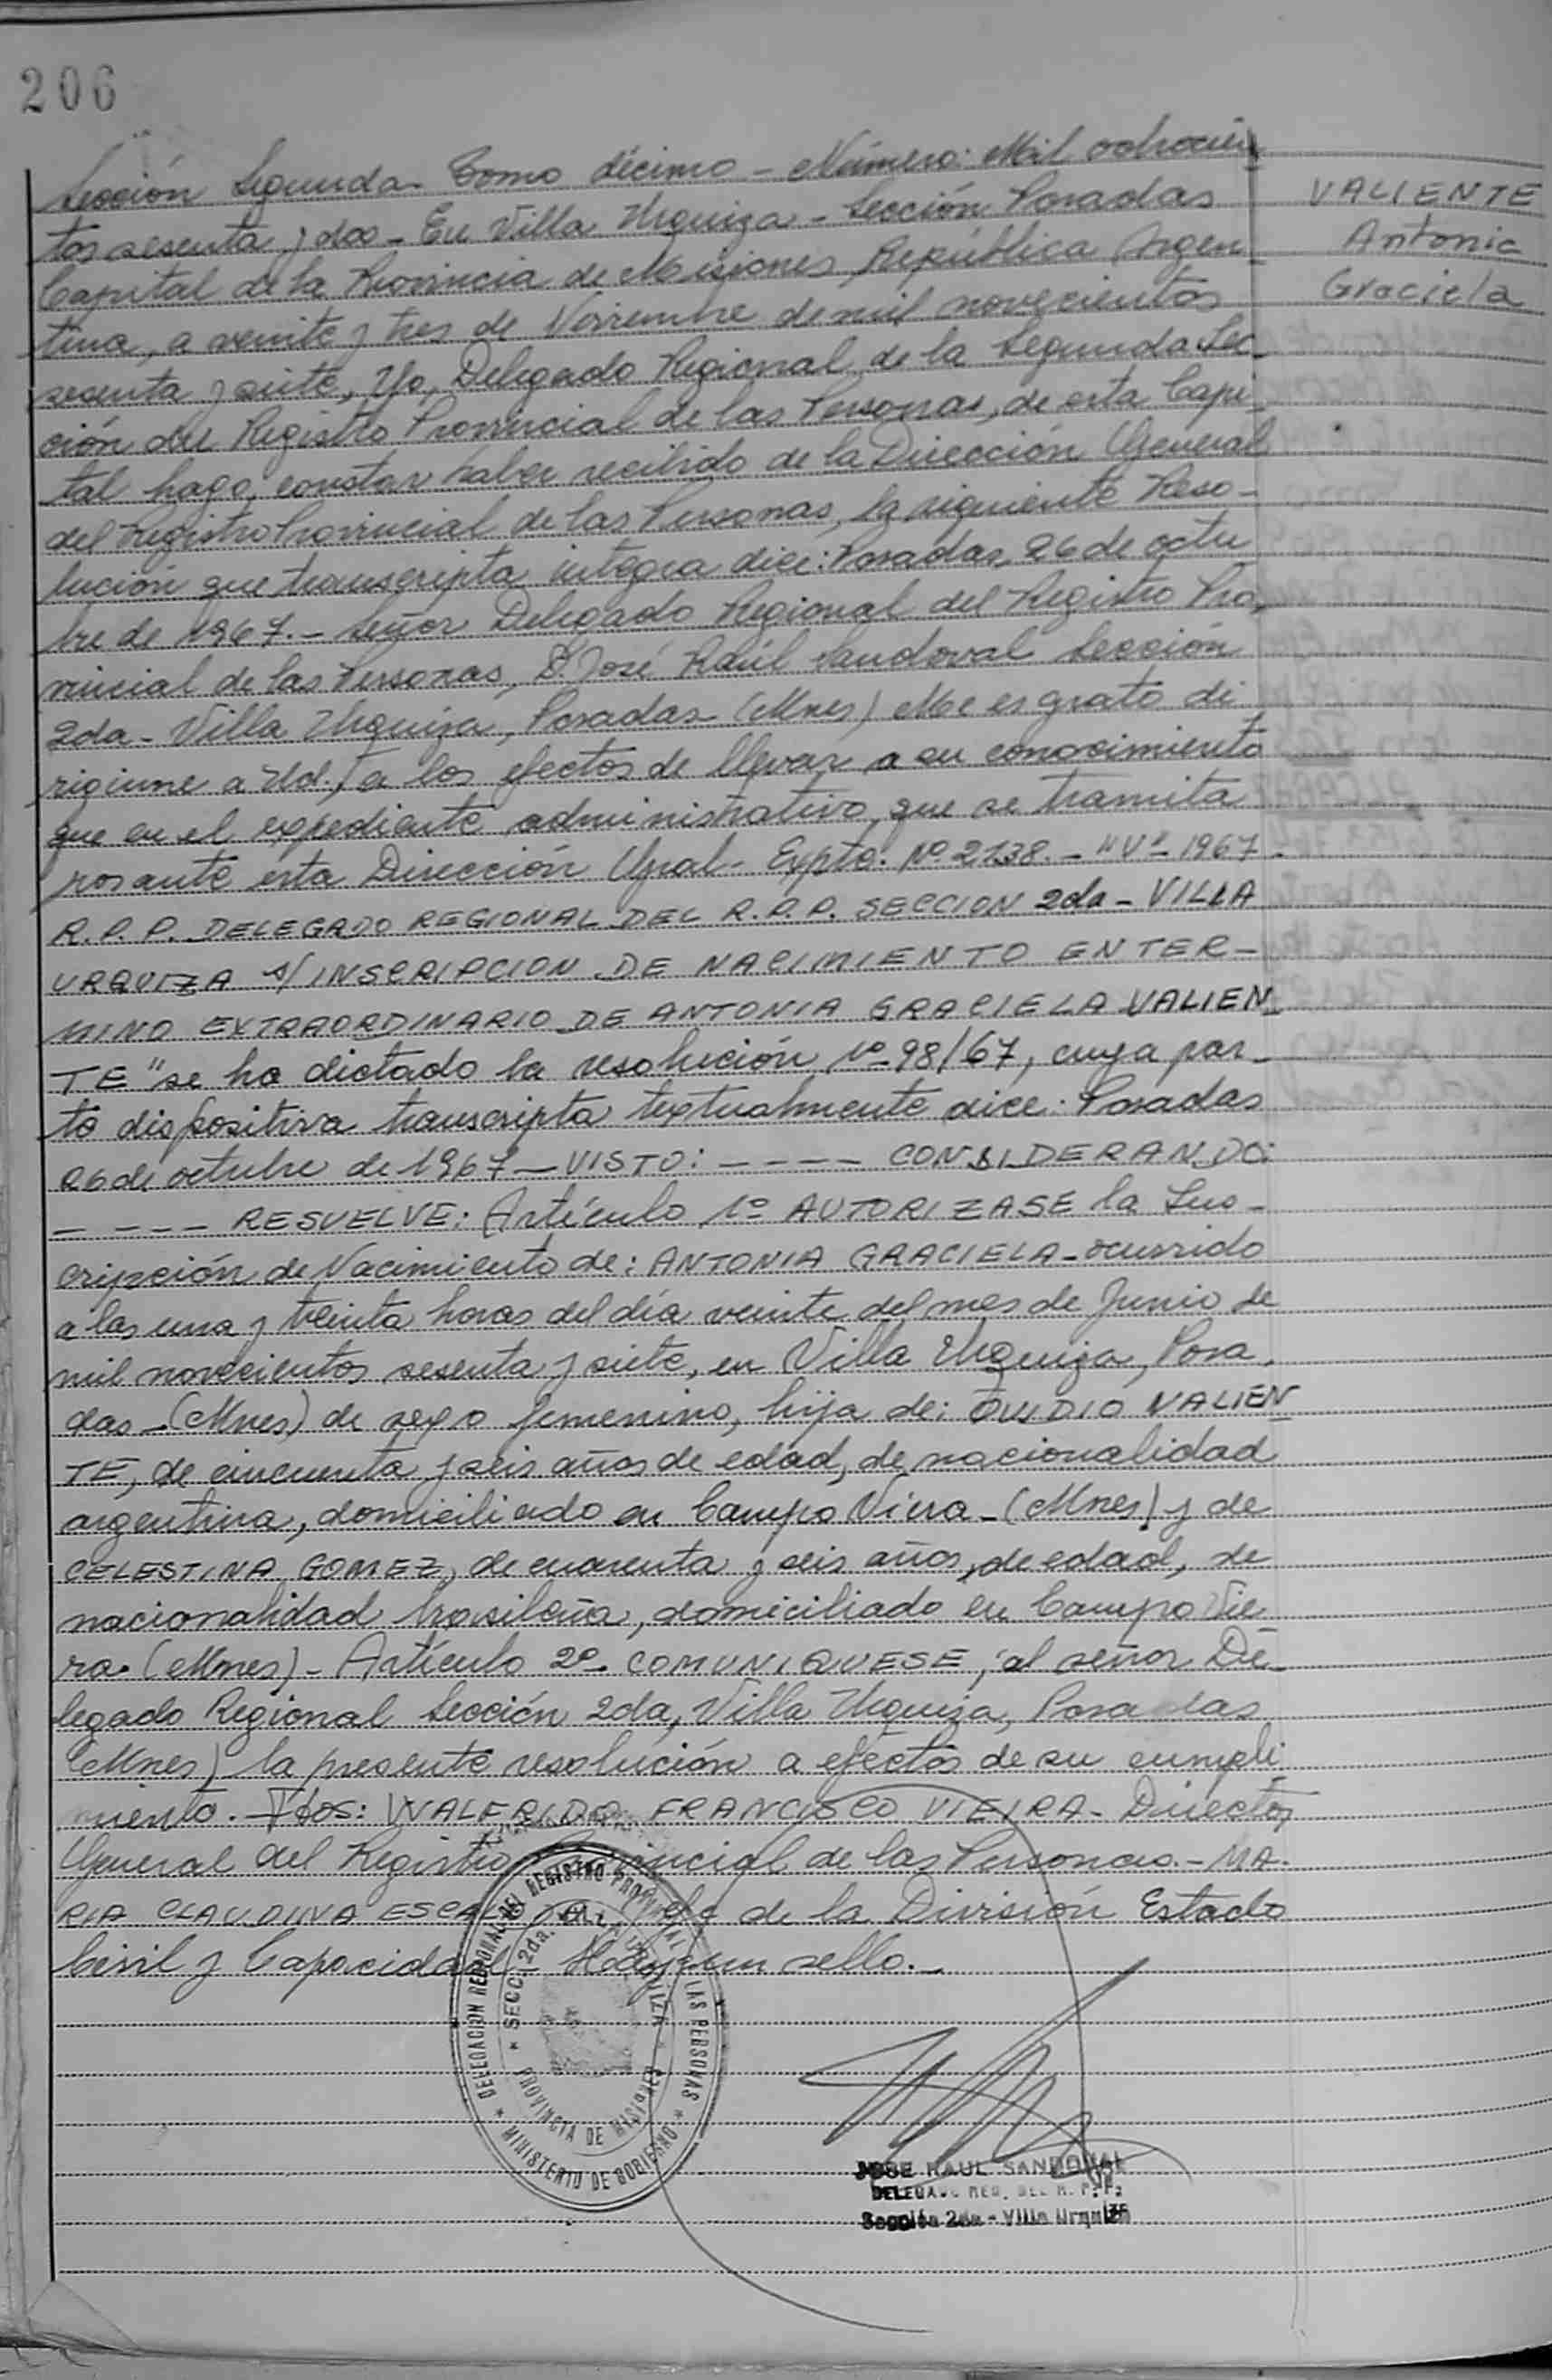 206
VALIENTE
Antonia
Graciela
Sección Segunda - Tomo décimo - Número: Mil ochocien
tos sesenta y dos - En Villa Urquiza - Sección Posadas
Capital de la Provincia de Misiones, República Argen
tina, a veinte y tres de Noviembre de mil novecientos
sesenta y siete, Yo, Delegado Regional de la Segunda Sec_
ción del Registro Provincial de las Personas, de esta Capi_
tal hago, constar haber recibido de la Dirección General
del Registro Provincial de las Personas, la siguiente Reso -
lución que transcripta integra dice: Posadas, 26 de octu
bre de 1967. - Señor Delegado Regional del Registro Pro_
vincial de las Personas, D. José Raúl Sandoval Sección
2da - Villa Urquiza, Posadas (Mnes) Me es grato di
rigirme a Ud., a los efectos de llevar a su conocimiento
que en el expediente administrativo, que se tramita
por ante esta Dirección Gral - Expte. Nº 2138. - "V" - 1967 -
R.P.P. DELEGADO REGIONAL DEL R.P.P. SECCION 2da - VILLA
URQUIZA s/ INSCRIPCION DE NACIMIENTO EN TER -
MINO EXTRAORDINARIO DE ANTONIA GRACIELA VALIEN_
TE" se ha dictado la resolución Nº 98/67, cuya par_
te dispositiva transcripta textualmente dice: Posadas
26 de octubre de 1967 - VISTO: - - - - CONSIDERANDO:
- - - - RESUELVE: Artículo 1º AUTORIZASE la Ins -
cripción de Nacimiento de: ANTONIA GRACIELA - ocurrido
a las una y treinta horas del día veinte del mes de Junio de
mil novecientos sesenta y siete, en Villa Urquiza, Posa_
das - (Mnes) de sexo femenino, hija de: OVIDIO VALIEN_
TE, de cincuenta y seis años de edad, de nacionalidad
argentina, domiciliado en Campo Viera - (Mnes) y de
CELESTINA GOMEZ, de cuarenta y seis años, de edad, de
nacionalidad brasileña, domiciliado en Campo Vie
ra. (Mnes) - Artículo 2º - COMUNIQUESE, al señor De_
legado Regional Sección 2da, Villa Urquiza, Posadas
(Mnes) la presente resolución a efectos de su cumpli_
miento. - Fdos: WALFRIDO FRANCISCO VIEIRA - Director
General del Registro Provincial de las Personas. - MA -
RIA CLAUDINA de la División Estado
Civil y Capacidad - Hay un sello. -
DELEGACION REGIONAL DEL REGISTRO PROVINCIAL DE LAS PERSONAS
* MINISTERIO DE GOBIERNO *
* SECC. 2da. VILLA URQUIZA *
PROVINCIA DE MISIONES
JOSE RAUL SANDOVAL
DELEGADO REG. DEL R. P. P.
Sección 2da - Villa Urquiza